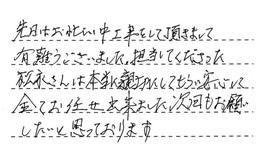 先日はお忙しい中工事をして頂きまして
有難うございました。担当してくださった
さんは本当に親切にしてもらい安心して
全てお任せ出来ました。次回もお願い
したいと思っております